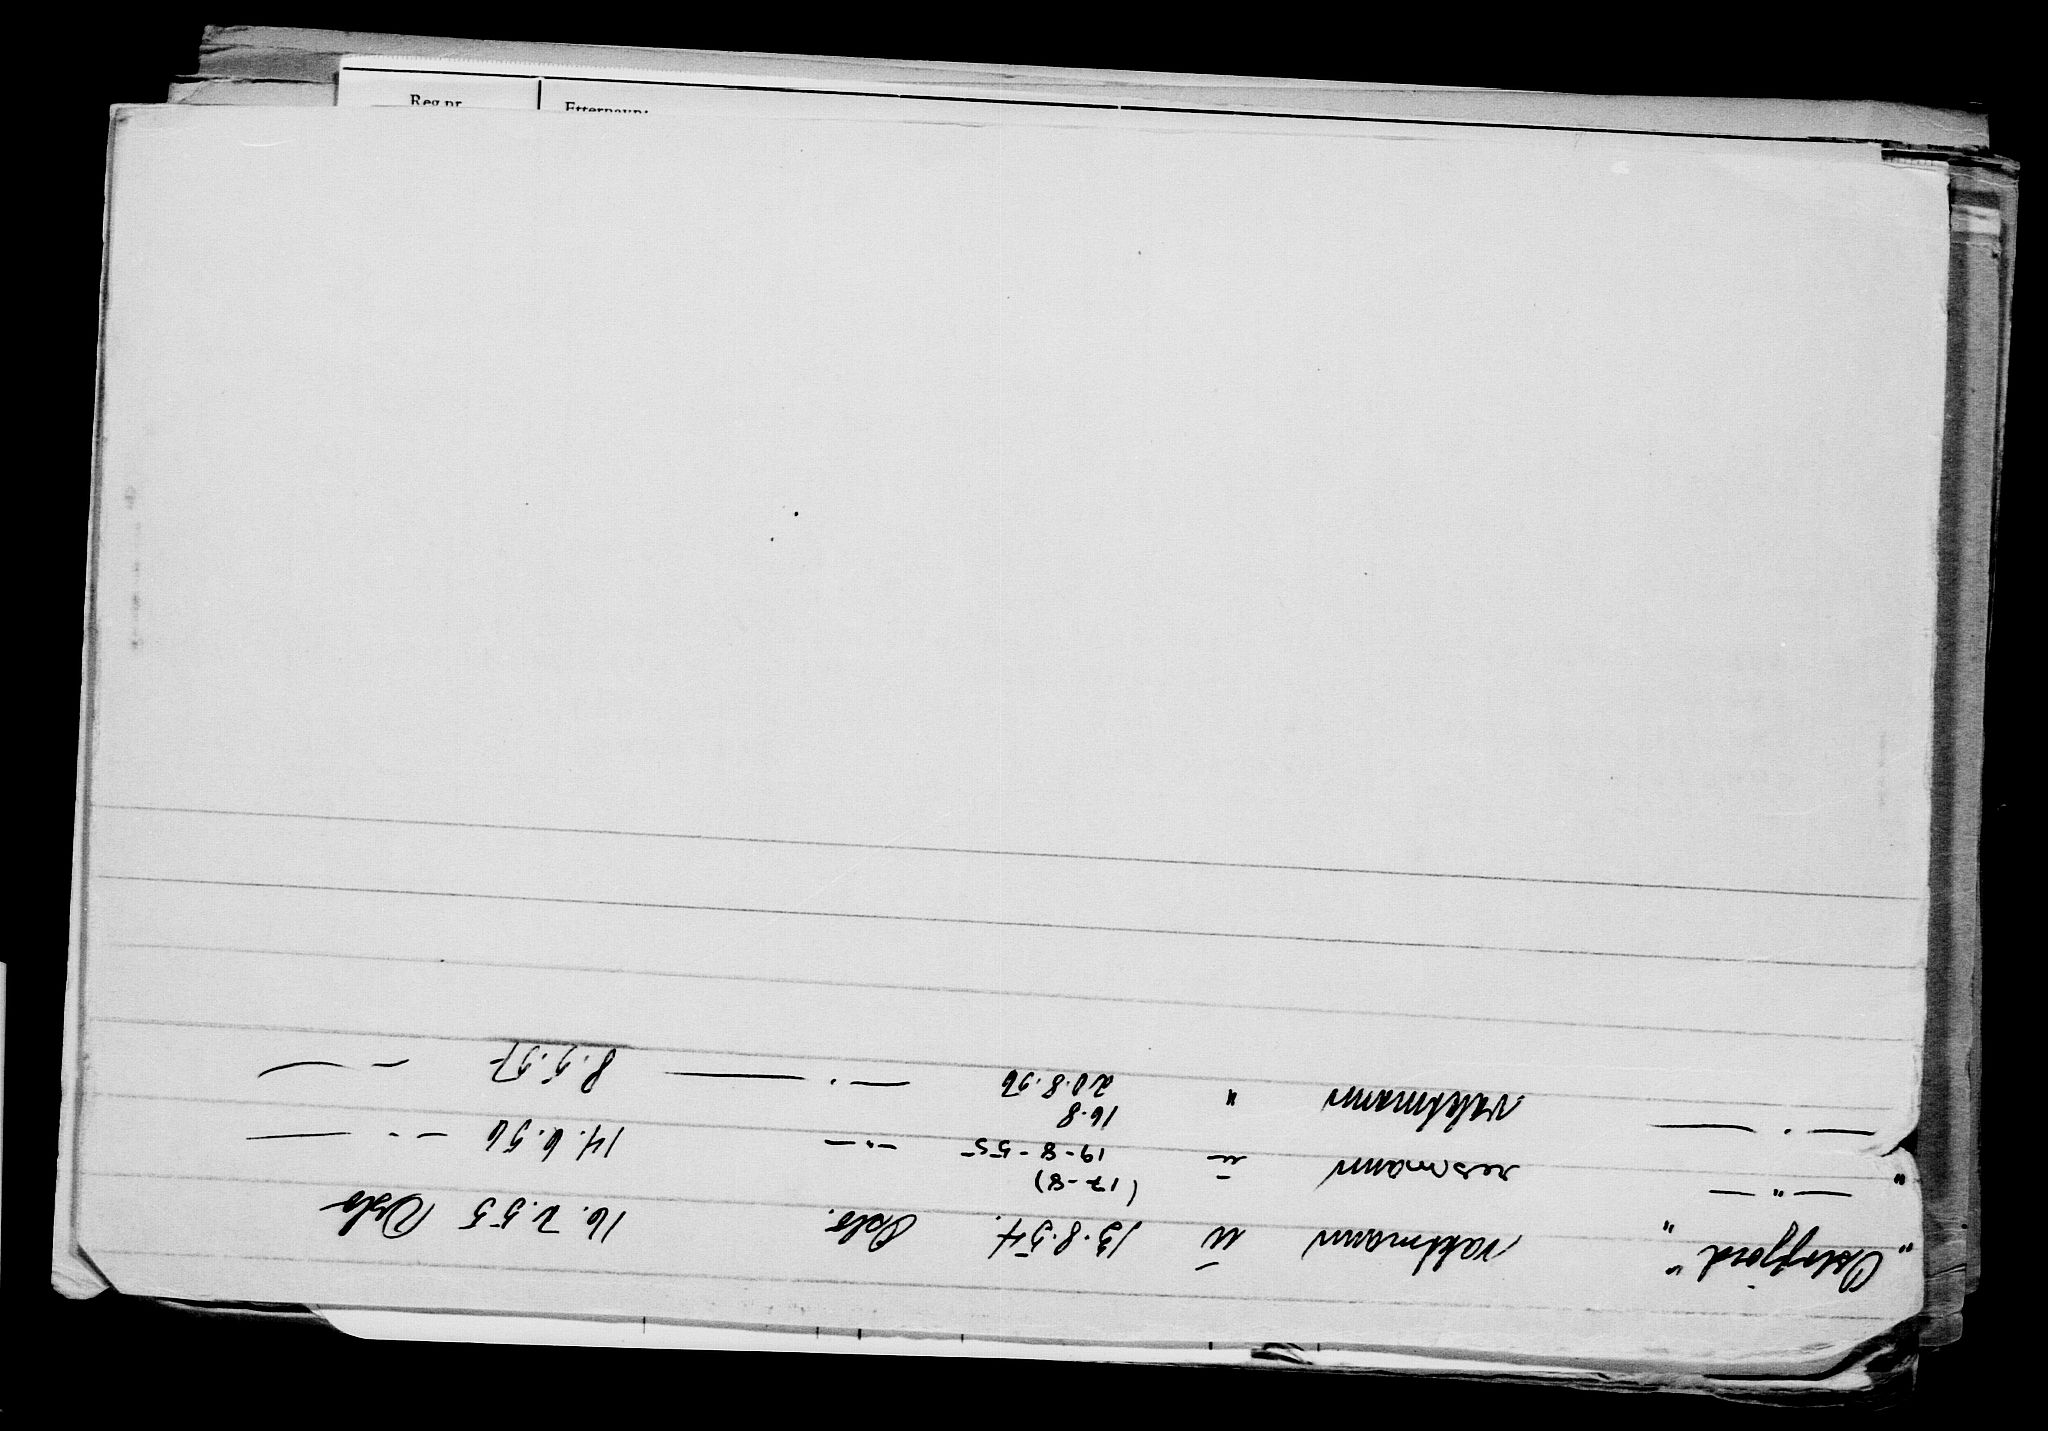 Reg.nr. Etternavn:
"Oslofjord" " vaktmann u 13.8.54. Oslo. 16.2.55 Oslo
(17-8)
" — " — " — 19-8-55 — " — 14.6.56 — " —
16.8
— " — vaktmann " 20.8.56 — " — 8.5.57 — " —